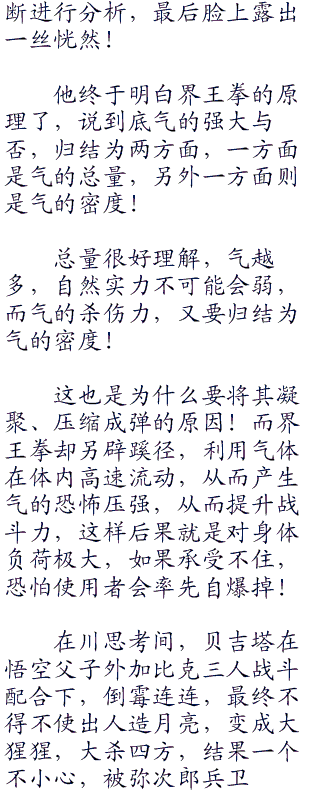 断进行分析，最后脸上露出
一丝恍然！
他终于明白界王拳的原
理了，说到底气的强大与
否，归结为两方面，一方面
是气的总量，另外一方面则
是气的密度！
总量很好理解，气越
多，自然实力不可能会弱，
而气的杀伤力，又要归结为
气的密度！
这也是为什么要将其凝
聚、压缩成弹的原因！而界
王拳却另辟蹊径，利用气体
在体内高速流动，从而产生
气的恐怖压强，从而提升战
斗力，这样后果就是对身体
负荷极大，如果承受不住，
恐怕使用者会率先自爆掉！
在川思考间，贝吉塔在
悟空父子外加比克三人战斗
配合下，倒霉连连，最终不
得不使出人造月亮，变成大
猩猩，大杀四方，结果一个
不小心，被弥次郎兵卫